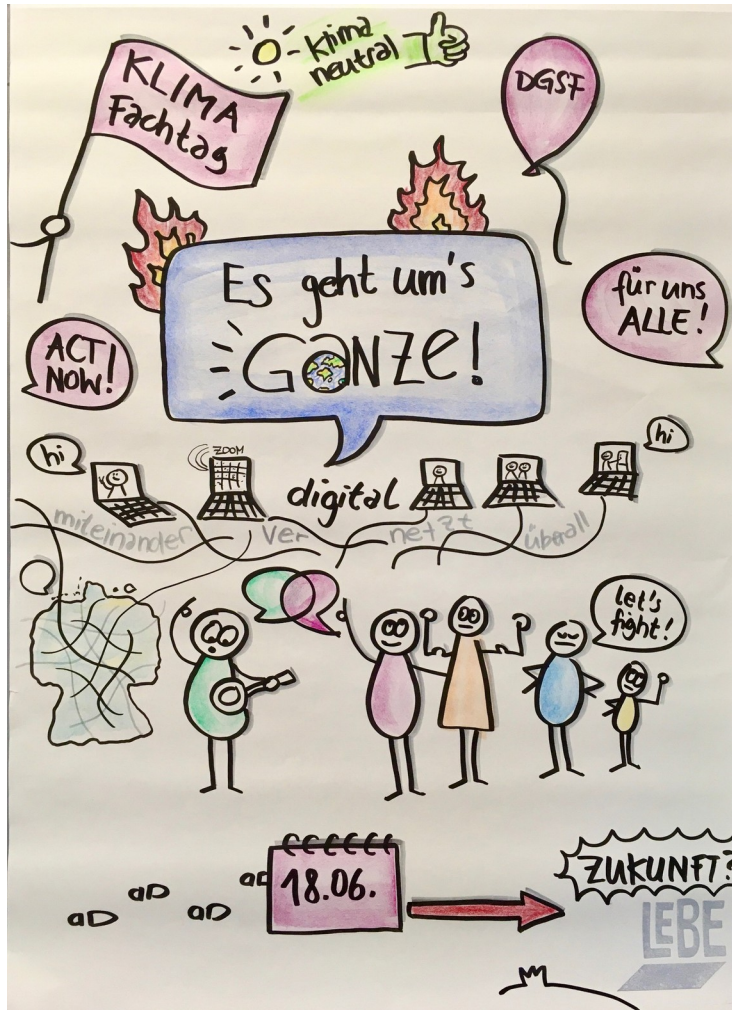 KLIMA
Fachtag
Klima
neutral
DGSF
Es geht um's
GANZE!
für uns
ALLE!
ACT
NOW!
hi
ZOOM
hi
digital
miteinander ver netzt überall
let's
fight!
18.06.
ZUKUNFT?
LEBE